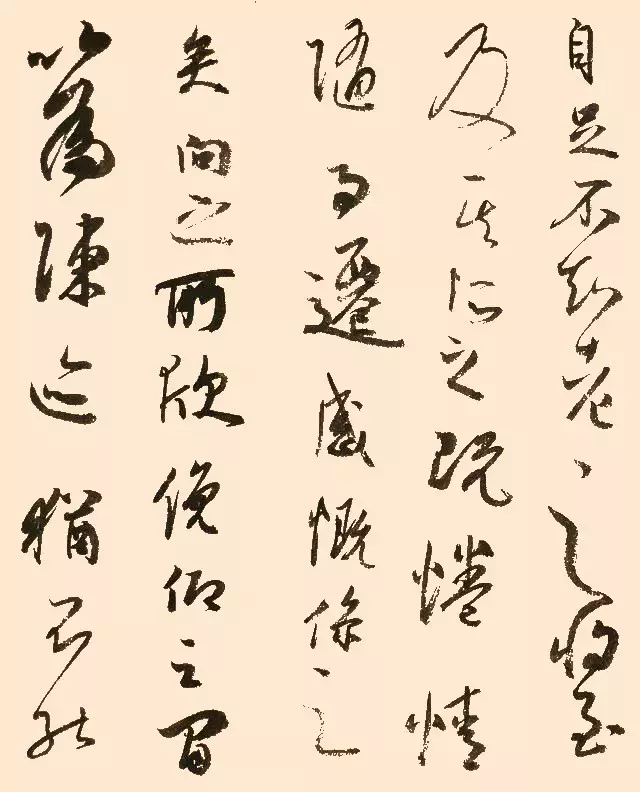 自足不知老之將至
及其所之既惓情
隨事遷感慨係之
矣向之所欣俛仰之間
以為陳迹猶不能